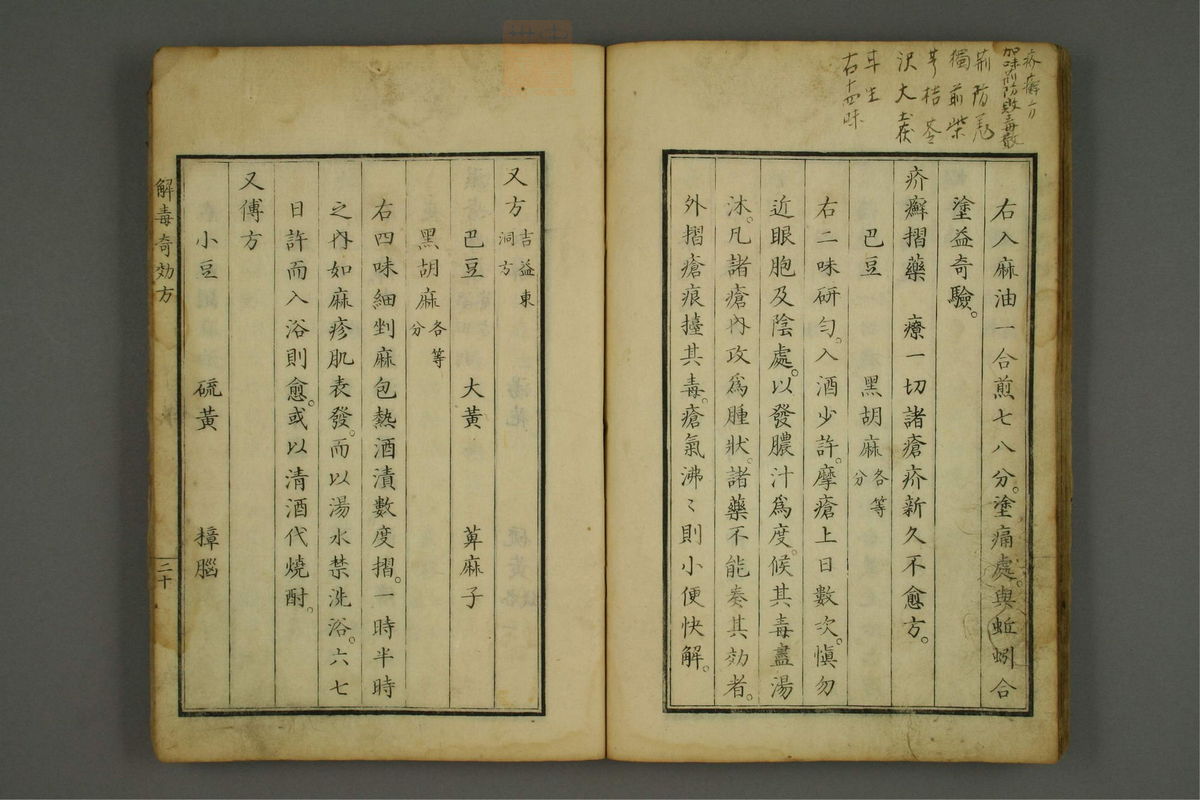 疥癬方
加味荊防敗毒散
荊防羌
獨前柴
芎桔苓
沢大茯
右十四味
右入麻油一合煎七八分。塗痛處。與蚯蚓合
塗益奇驗。
疥癬摺藥　療一切諸瘡疥新久不愈方。
巴豆　黑胡麻各等分
右二味研勻。入酒少許。摩瘡上日數次。愼勿
近眼胞及陰處。以發膿汁爲度。候其毒盡湯
沐。凡諸瘡內攻爲腫狀。諸藥不能奏其効者。
外摺瘡痕擡其毒。瘡氣沸〻則小便快解。
又方吉益東洞方
巴豆　大黃　萆麻子
黑胡麻各等分
右四味細剉麻包熱酒漬數度摺。一時半時
之內如麻疹肌表發。而以湯水禁洗浴。六七
日許而入浴則愈。或以清酒代燒酎。
又傅方
小豆　硫黃　樟腦
解毒奇効方
二十